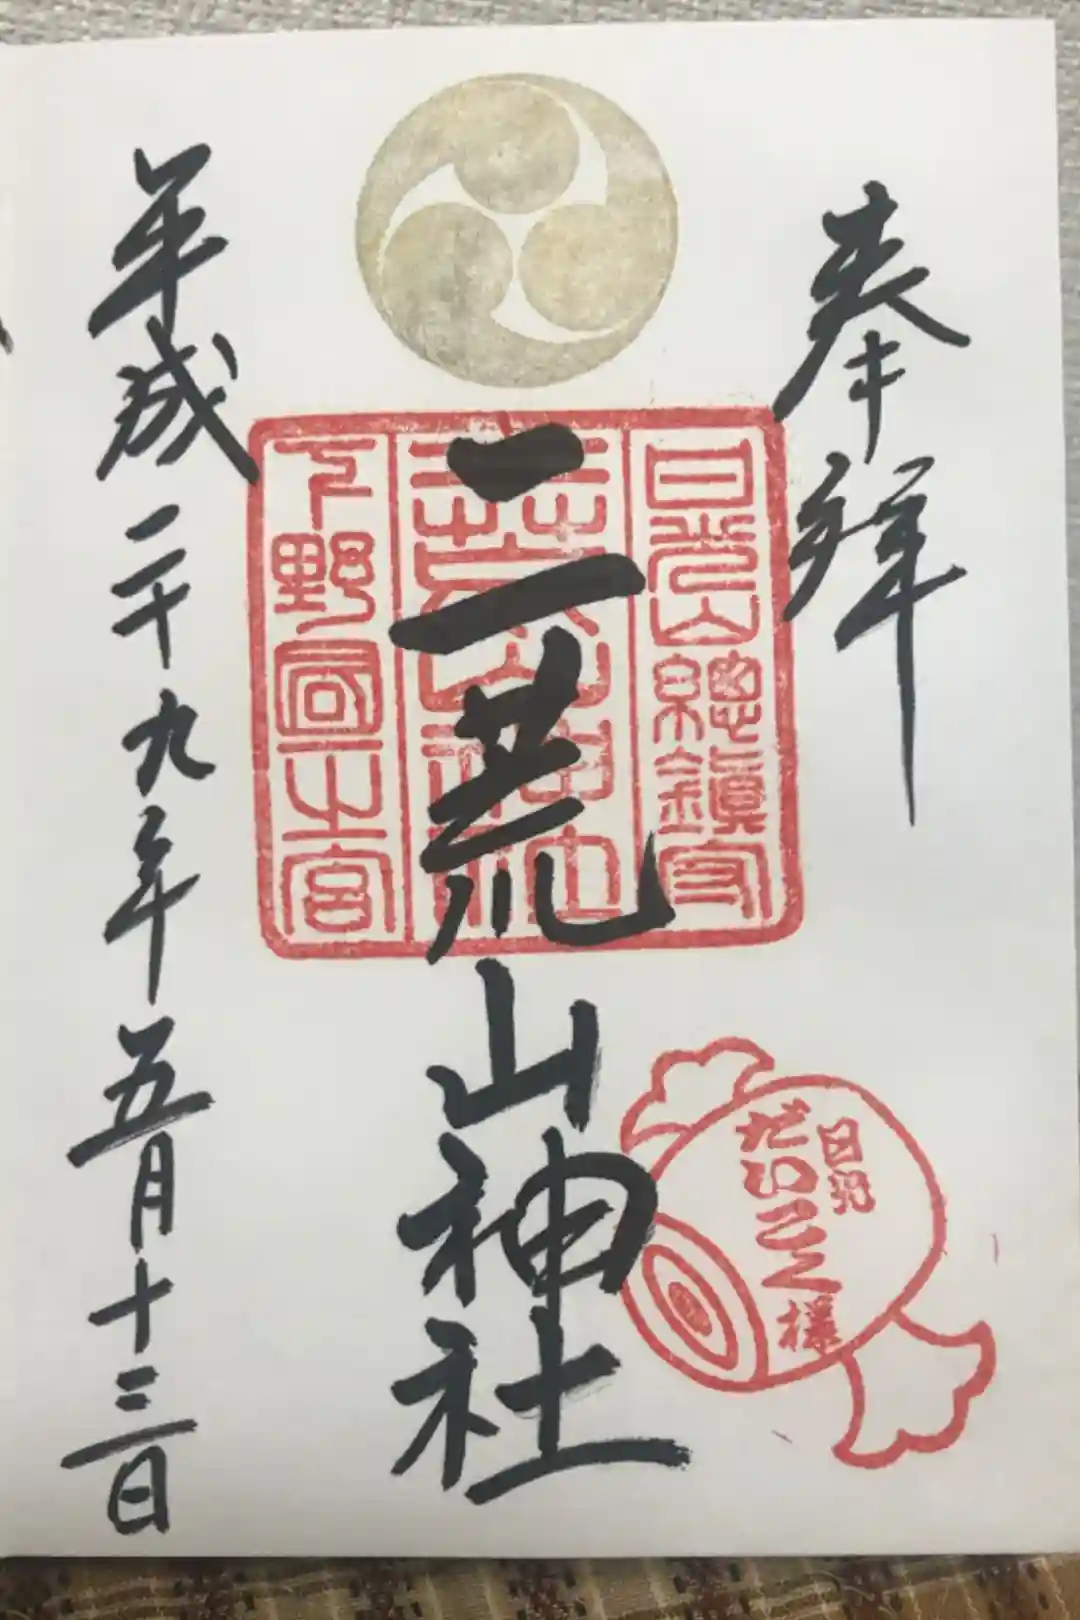 奉拝
日光山總鎮守
二荒山神社
下野國一之宮
日光
だいこく様
二荒山神社
平成二十九年五月十三日